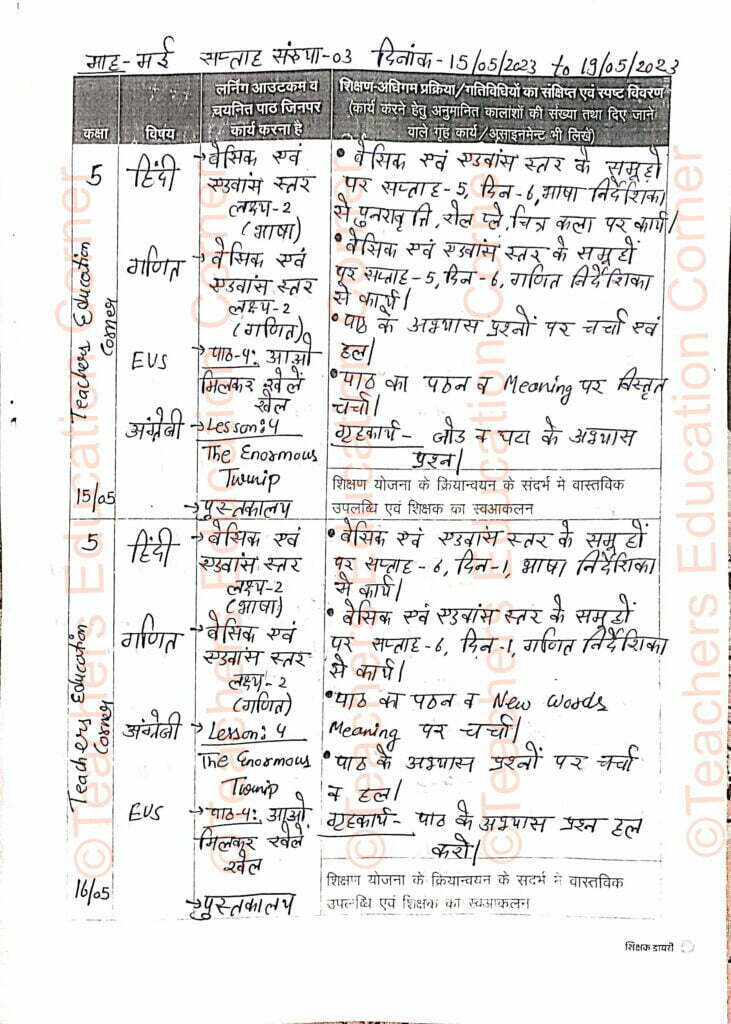 माह - मई सप्ताह संख्या-03 दिनांक- 15/05/2023 to 19/05/2023
कक्षा
विषय
लर्निंग आउटकम व
चयनित पाठ जिनपर
कार्य करना है
शिक्षण-अधिगम प्रक्रिया/गतिविधियों का संक्षिप्त एवं स्पष्ट विवरण
(कार्य करने हेतु अनुमानित कालांशों की संख्या तथा दिए जाने
वाले गृह कार्य/असाइनमेन्ट भी लिखें)
5
Teachers Education
Corner
15/05
हिंदी
गणित
EVS
अंग्रेजी
→ बेसिक एवं
एडवांस स्तर
लक्ष्य-2
(भाषा)
→ बेसिक एवं
एडवांस स्तर
लक्ष्य-2
(गणित)
→ पाठ-4: आओ
मिलकर खेलें
खेल
→ Lesson: 4
The Enormous
Turnip
→ पुस्तकालय
• बेसिक एवं एडवांस स्तर के समूहों
पर सप्ताह-5, दिन-6, भाषा निर्देशिका
से पुनरावृत्ति, रोल प्ले, चित्र कला पर कार्य।
• बेसिक एवं एडवांस स्तर के समूहों
पर सप्ताह-5, दिन-6, गणित निर्देशिका
से कार्य।
• पाठ के अभ्यास प्रश्नों पर चर्चा एवं
हल।
• पाठ का पठन व Meaning पर विस्तृत
चर्चा।
गृहकार्य- जोड व घटा के अभ्यास
प्रश्न।
शिक्षण योजना के क्रियान्वयन के संदर्भ मे वास्तविक
उपलब्धि एवं शिक्षक का स्वआकलन
5
Teachers Education
Corner
16/05
हिंदी
गणित
अंग्रेजी
EVS
→ बेसिक एवं
एडवांस स्तर
लक्ष्य-2
(भाषा)
→ बेसिक एवं
एडवांस स्तर
लक्ष्य-2
(गणित)
→ Lesson: 4
The Enormous
Turnip
→ पाठ-4: आओ
मिलकर खेलें
खेल
→ पुस्तकालय
• बेसिक एवं एडवांस स्तर के समूहों
पर सप्ताह-6, दिन-1, भाषा निर्देशिका
से कार्य।
• बेसिक एवं एडवांस स्तर के समूहों
पर सप्ताह-6, दिन-1, गणित निर्देशिका
से कार्य।
• पाठ का पठन व New Words
Meaning पर चर्चा।
• पाठ के अभ्यास प्रश्नों पर चर्चा
व हल।
गृहकार्य- पाठ के अभ्यास प्रश्न हल
करो।
शिक्षण योजना के क्रियान्वयन के संदर्भ मे वास्तविक
उपलब्धि एवं शिक्षक का स्वआकलन
शिक्षक डायरी
©Teachers Education Corner
©Teachers Education Corner
©Teachers Education Corner
©Teachers Education Corner
©Teachers Education Corner